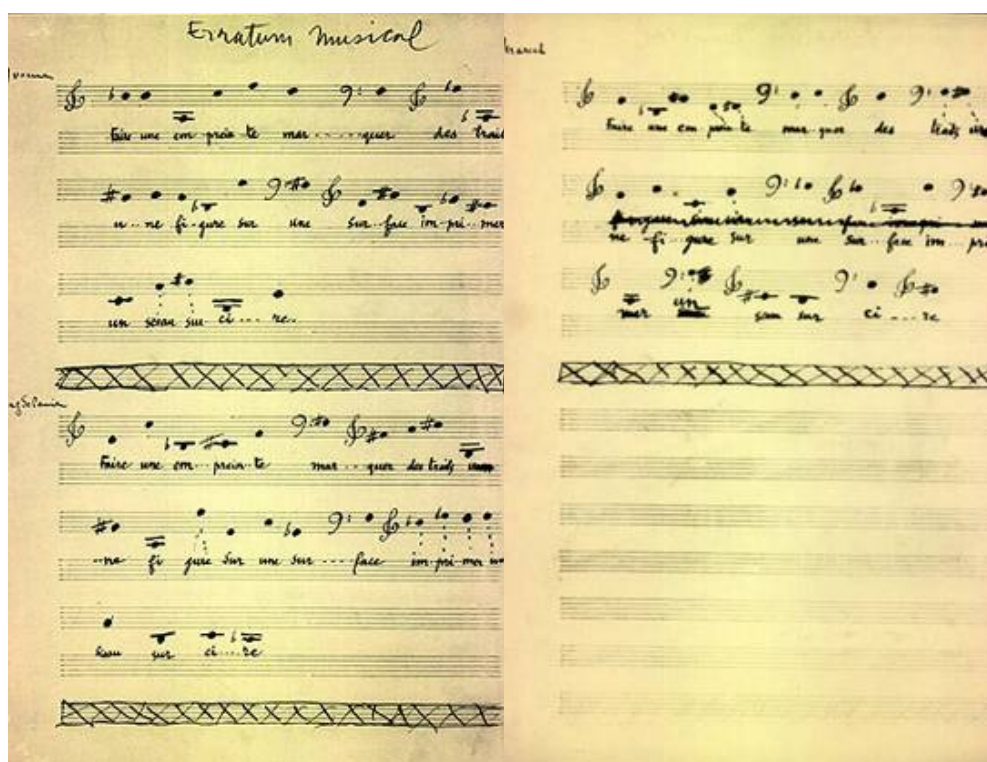 Erratum Musical
Faire une em prein te mar.....quer des trais
u...ne fi-gure sur une sur..face im-pri-mer
un sceau sur ci....re.
Faire une em...prein-te mar...quer des traits
--ne fi gure sur une sur....face im-pri-mer un
sceau sur ci....re
Faire une em prein te mar-quer des traits
ne fi..gure sur une sur..face im...pri
mer un sur ci...re